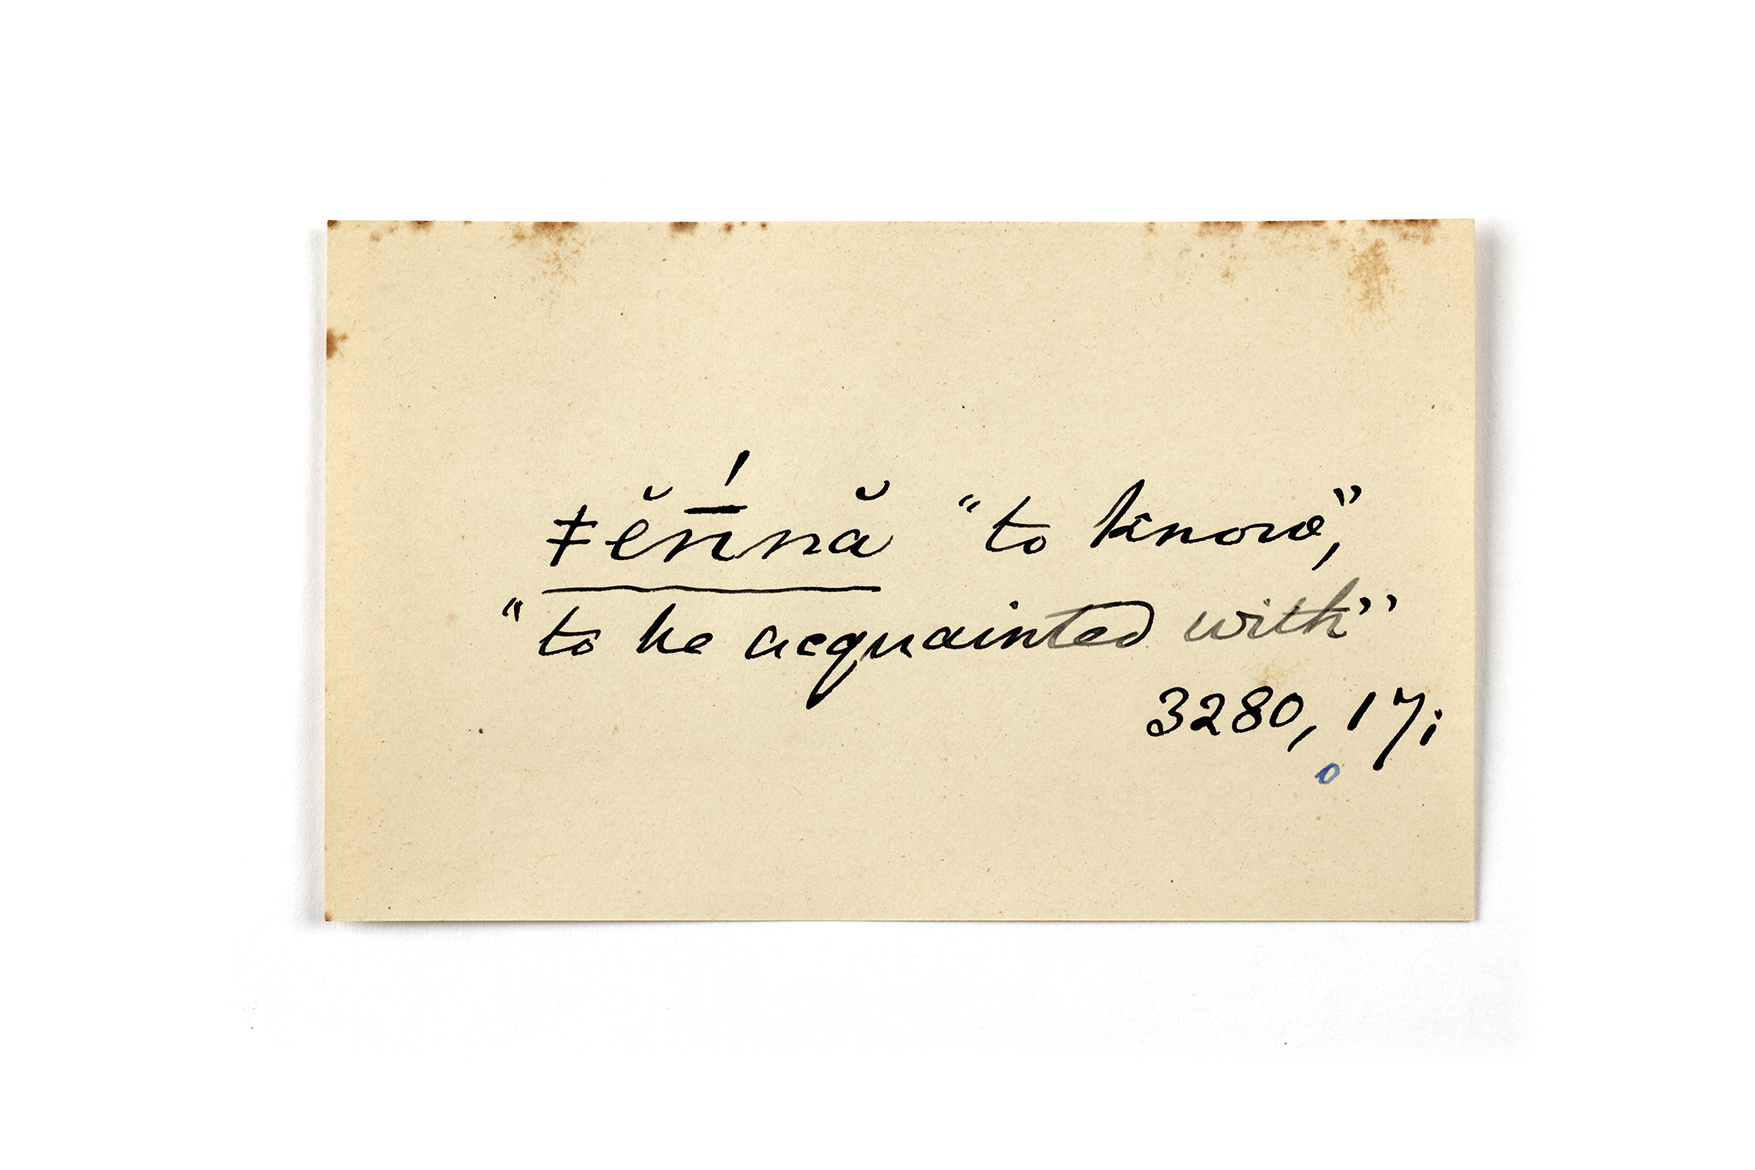 ǂĕn̄́nă “to know”,
“to be acquainted with”
3280, 17;
o